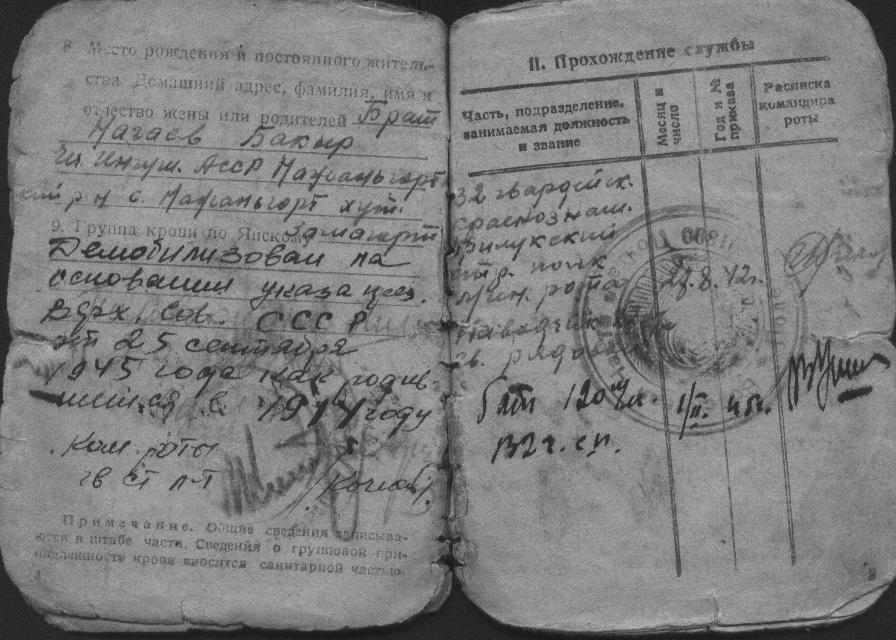 8. Место рождения и постоянного житель-
ства Домашний адрес, фамилия, имя и
отчество жены или родителей Брат
Нагаев Бакир
Чеч. Ингуш. АССР
р-н с. хут.
9. Группа крови по Янскому
Демобилизован на
основании указа през.
Верх. Сов. СССР
от 25 сентября
1945 года как родив-
шегося в 1914 году
Ком. роты
гв ст л-т
Примечание. Общие сведения записыва-
ются в штабе части. Сведения о групповой при-
надлежности крови вносятся санитарной частью.
II. Прохождение службы
Часть, подразделение, занимаемая должность и звание
Месяц и число
Год и № приказа
Расписка командира роты
32 гвардейск.
краснознам.
стр. полк
мин. рота 28.8.42г.
Наводчик
гв. рядовой
бат 120 м/м. 1/II. 45г.
132 г. сп.